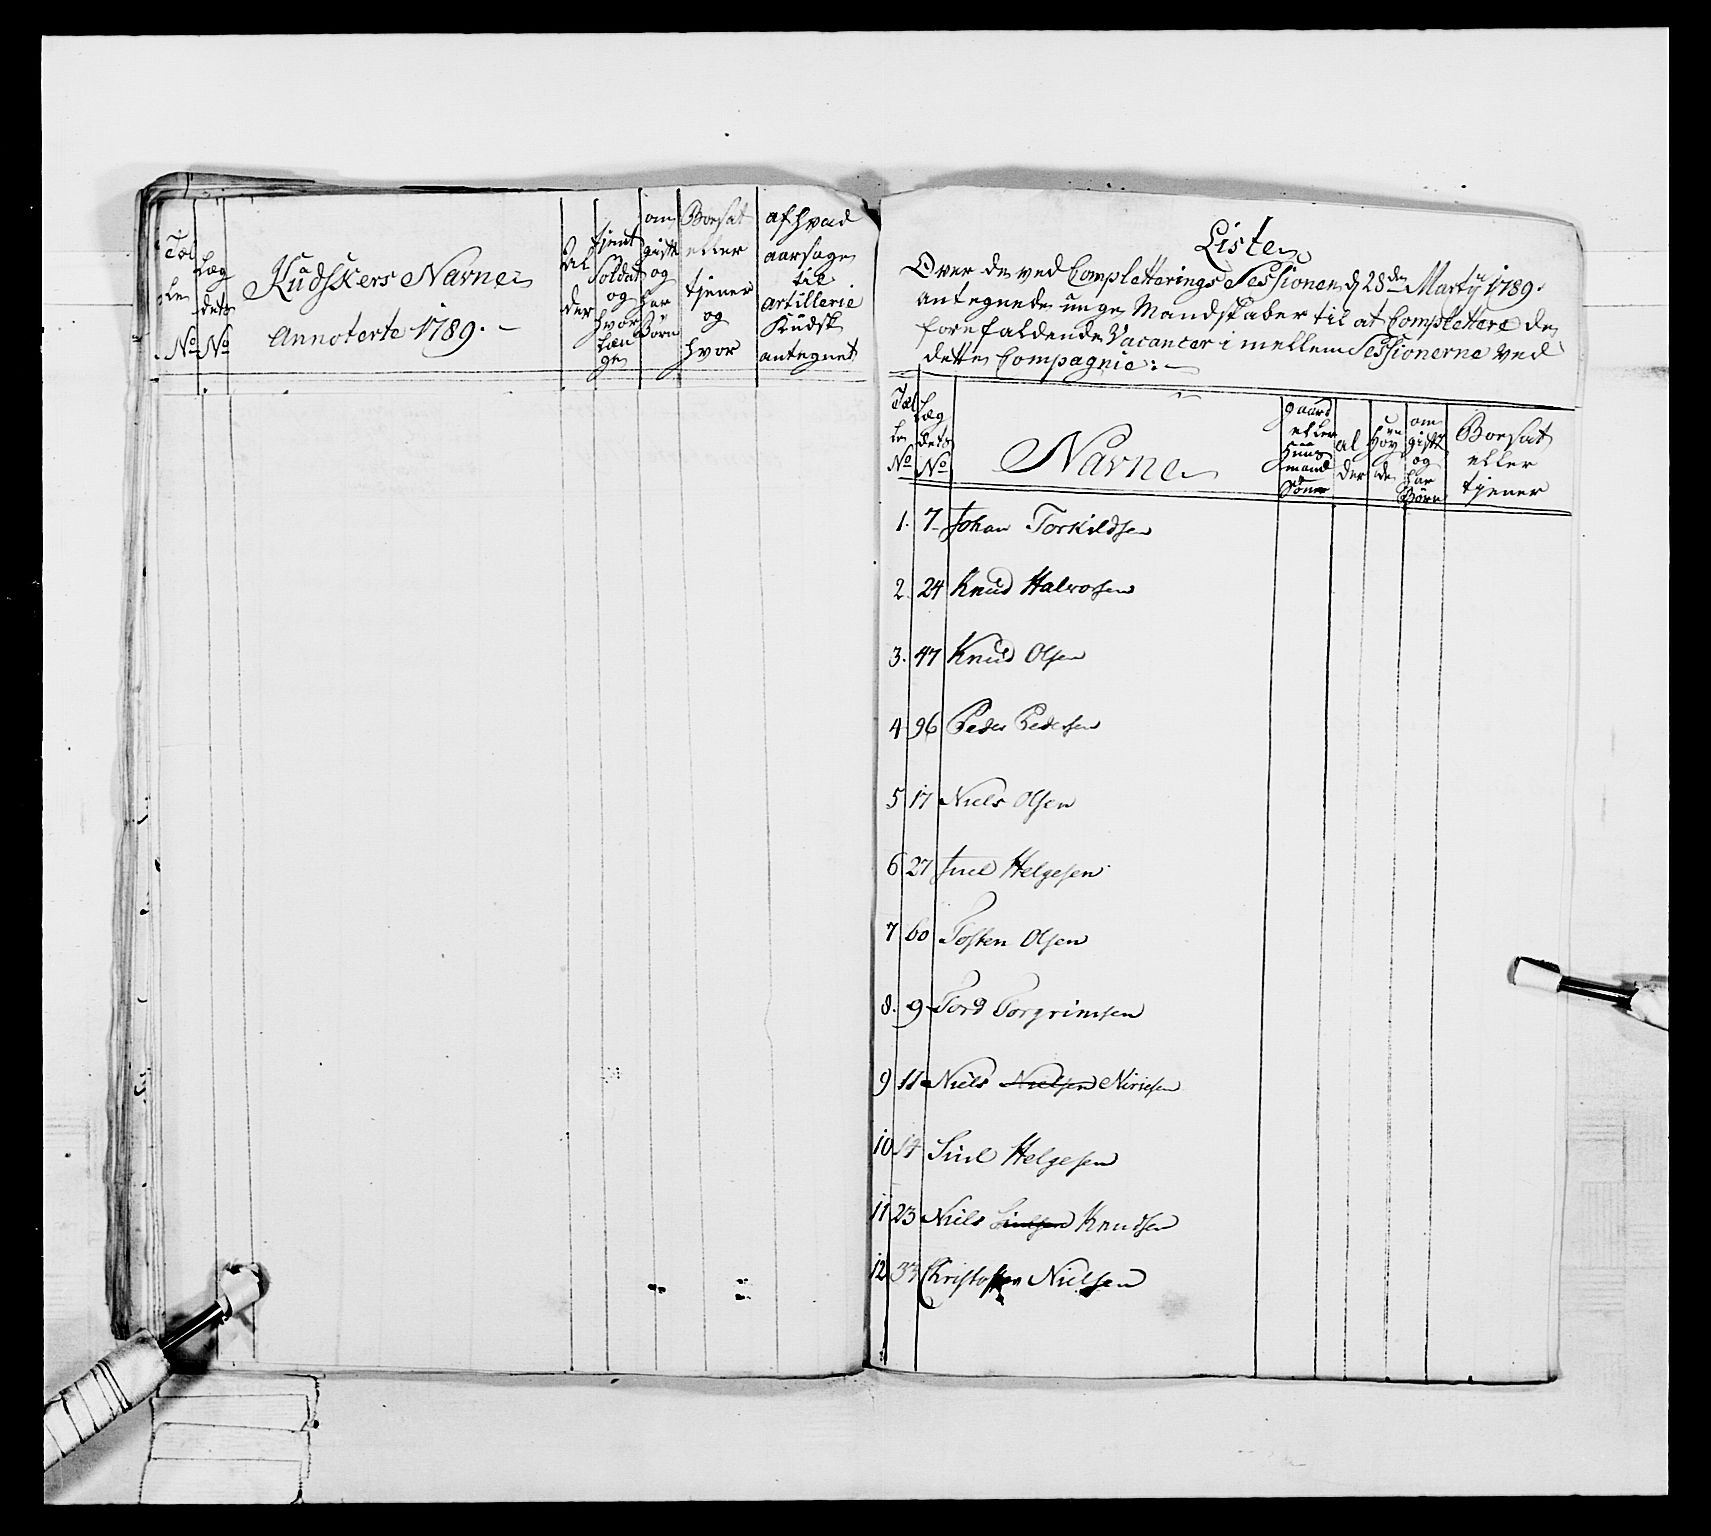 Tæl
le
No
Læg
dets
No
Kudskers Navne
Annoterte 1789.
Al
der
tjent
Soldat
og
hvor
læn
ge
om
gift
og
har
Børn
Boesat
eller
tjener
og
hvor
af hvad
aarsage
til
artillerie
Kudsk
antegnet
Liste
Over de ved Completterings Sessionen d 28de Marty 1789.
antegnede unge Mandskaber til at Complettere de
forefaldende Vacancer i mellem Sessionerne ved
dette Compagnie:
Tæl
le
No
Læg
dets
No
Navne
gaard
eller
Huus
mand
Sønner
al
der
om
gift
og
har
Børn
Boesat
eller
tjener
1. 7. Johan Torkildsen
2. 24 Knud Halvorsen
3. 47 Knud Olsen
4 96 Peder Pedersen
5 17 Niels Olsen
6 27 Juel Helgesen
7 60 Tosten Olsen
8. 9 Tord Torgrimsen
9 11 Niels Nielsen Nirisesen
10 14 Siul Helgesen
11 23 Niels Siulsen Knudsen
12 33 Christoffer Nielsen